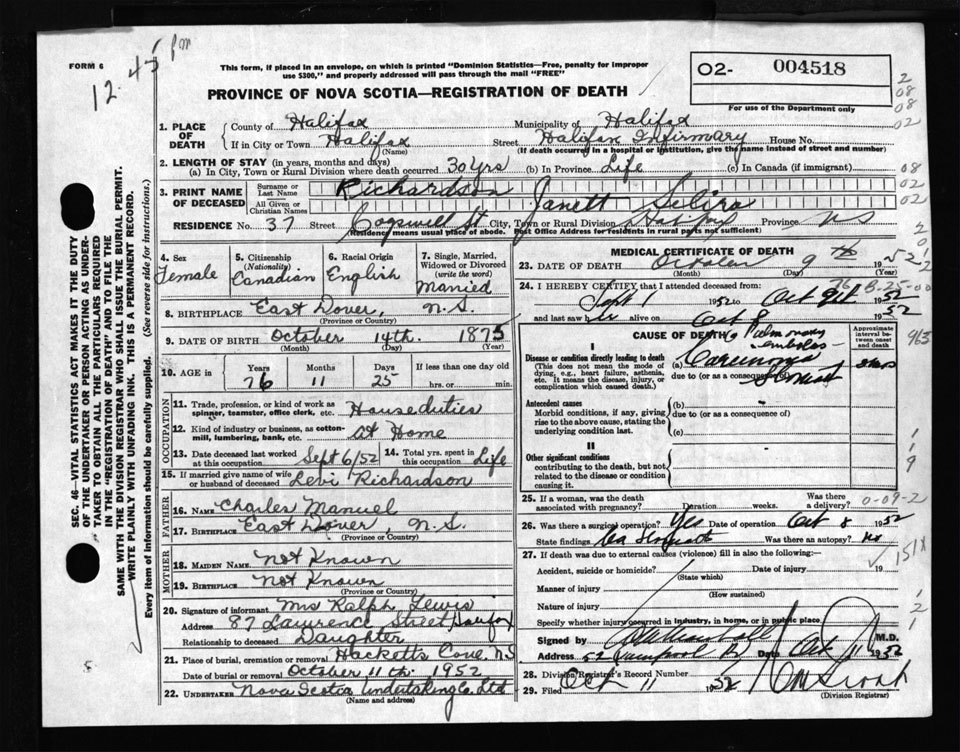 FORM 6
12.45 pm
This form, if placed in an envelope, on which is printed "Dominion Statistics—Free, penalty for improper
use $300," and properly addressed will pass through the mail "FREE"
O2- 004518
For use of the Department only
PROVINCE OF NOVA SCOTIA—REGISTRATION OF DEATH
2
08
08
02
1. PLACE OF DEATH
County of Halifax Municipality of Halifax
If in City or Town Halifax (Name) Street Halifax Infirmary House No.
(If death occurred in a hospital or institution, give the name instead of street and number)
2. LENGTH OF STAY (in years, months and days)
(a) In City, Town or Rural Division where death occurred 30 yrs (b) In Province Life (c) In Canada (if immigrant)
08
02
02
3. PRINT NAME OF DECEASED
Surname or Last Name Richardson
All Given or Christian Names Janett Selira
RESIDENCE No. 37 Street Cogswell St City, Town or Rural Division Halifax Province NS
(Residence means usual place of abode. Post Office Address for residents in rural parts not sufficient)
4. Sex Female
5. Citizenship (Nationality) Canadian
6. Racial Origin English
7. Single, Married, Widowed or Divorced (write the word) Married
8. BIRTHPLACE East Dover, N.S.
(Province or Country)
9. DATE OF BIRTH October 14th. 1875
(Month) (Day) (Year)
10. AGE Years 76 Months 11 Days 25 If less than one day hrs. or min.
OCCUPATION
11. Trade, profession, or kind of work as spinner, teamster, office clerk, etc. House duties
12. Kind of industry or business, as cotton-mill, lumbering, bank, etc. at Home
13. Date deceased last worked at this occupation Sept 6/52 14. Total yrs. spent in this occupation Life
15. If married give name of wife or husband of deceased Levi Richardson
FATHER
16. Name Charles Manuel
17. Birthplace East Dover, N.S.
(Province or Country)
MOTHER
18. MAIDEN NAME Not Known
19. BIRTHPLACE Not Known
(Province or Country)
20. Signature of informant Mrs Ralph Lewis
Address 87 Lawrence Street Halifax
Relationship to deceased Daughter
21. Place of burial, cremation or removal Hacketts Cove, NS
Date of burial or removal October 11th. 1952
22. UNDERTAKER Nova Scotia Undertaking Co. Ltd
(Name and address)
MEDICAL CERTIFICATE OF DEATH
23. DATE OF DEATH October 9th 1952
(Month) (Day) (Year)
24. I HEREBY CERTIFY that I attended deceased from:
Sept 1 1952 to Oct 9th 1952
and last saw her alive on Oct 8 1952
76 B-25-00
963
CAUSE OF DEATH
Approximate interval between onset and death
I
Disease or condition directly leading to death
(This does not mean the mode of dying, e.g., heart failure, asthenia, etc. It means the disease, injury, or complication which caused death.)
Pulmonary embolus
(a) Carcinoma Stomach
due to (or as a consequence of)
Antecedent causes
Morbid conditions, if any, giving rise to the above cause, stating the underlying condition last.
(b)
due to (or as a consequence of)
(c)
II
Other significant conditions
contributing to the death, but not related to the disease or condition causing it.
25. If a woman, was the death associated with pregnancy? Duration weeks. Was there a delivery?
0-09-2
26. Was there a surgical operation? Yes Date of operation Oct 8 1952
State findings Ca Stomach Was there an autopsy? No
151X
27. If death was due to external causes (violence) fill in also the following:—
Accident, suicide or homicide? Date of injury 19
(State which)
Manner of injury
(How sustained)
Nature of injury
Specify whether injury occurred in industry, in home, or in public place.
Signed by M.D.
Address 52 Date Oct 11 1952
28. Division Registrar's Record Number
29. Filed Oct 11 1952
(Division Registrar)
SEC. 46—VITAL STATISTICS ACT MAKES IT THE DUTY
OF THE UNDERTAKER OR PERSON ACTING AS UNDER-
TAKER TO OBTAIN ALL THE PARTICULARS REQUIRED
IN THE "REGISTRATION OF DEATH" AND TO FILE THE
SAME WITH THE DIVISION REGISTRAR WHO SHALL ISSUE THE BURIAL PERMIT.
WRITE PLAINLY WITH UNFADING INK. THIS IS A PERMANENT RECORD.
Every item of information should be carefully supplied. (See reverse side for instructions.)